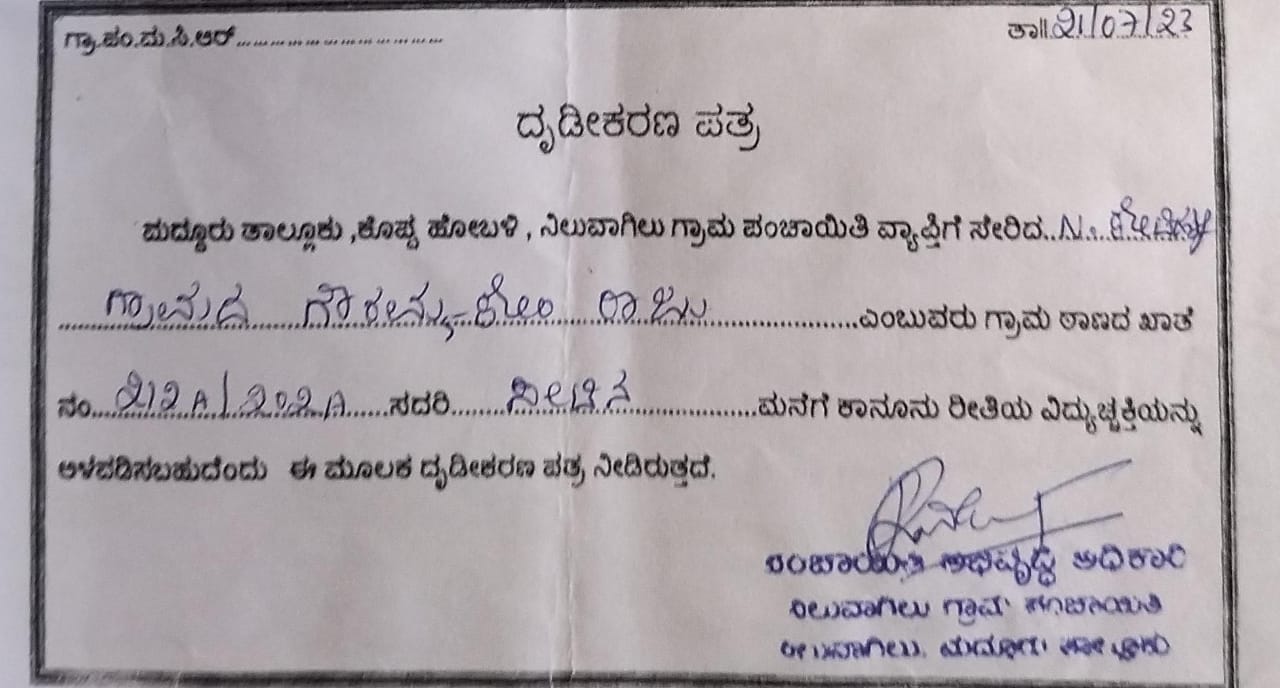 ಗ್ರಾ.ಪಂ.ಮ.ಸಿ.ಆರ್............................... ತಾ॥21/07/23
ದೃಡೀಕರಣ ಪತ್ರ
ಮದ್ದೂರು ತಾಲ್ಲೂಕು ,ಕೊಪ್ಪ ಹೋಬಳಿ , ನಿಲುವಾಗಿಲು ಗ್ರಾಮ ಪಂಚಾಯಿತಿ ವ್ಯಾಪ್ತಿಗೆ ಸೇರಿದ..N.
ಗ್ರಾಮದ ಗೌರಮ್ಮ ಕೋಂ ರಾಜು ಎಂಬುವರು ಗ್ರಾಮ ಠಾಣದ ಖಾತೆ
ನಂ...212A/202A......ಸದರಿ........ನೀಡಿನ...............ಮನೆಗೆ ಕಾನೂನು ರೀತಿಯ ವಿದ್ಯುಚ್ಚಕ್ತಿಯನ್ನು
ಅಳವಡಿಸಬಹುದೆಂದು ಈ ಮೂಲಕ ದೃಡೀಕರಣ ಪತ್ರ ನೀಡಿರುತ್ತದೆ.
ಪಂಚಾಯಿತಿ ಅಭಿವೃದ್ಧಿ ಅಧಿಕಾರಿ
ನಿಲುವಾಗಿಲು ಗ್ರಾಮ ಪಂಚಾಯಿತಿ
ನಿಲುವಾಗಿಲು, ಮದ್ದೂರು ತಾಲ್ಲೂಕು